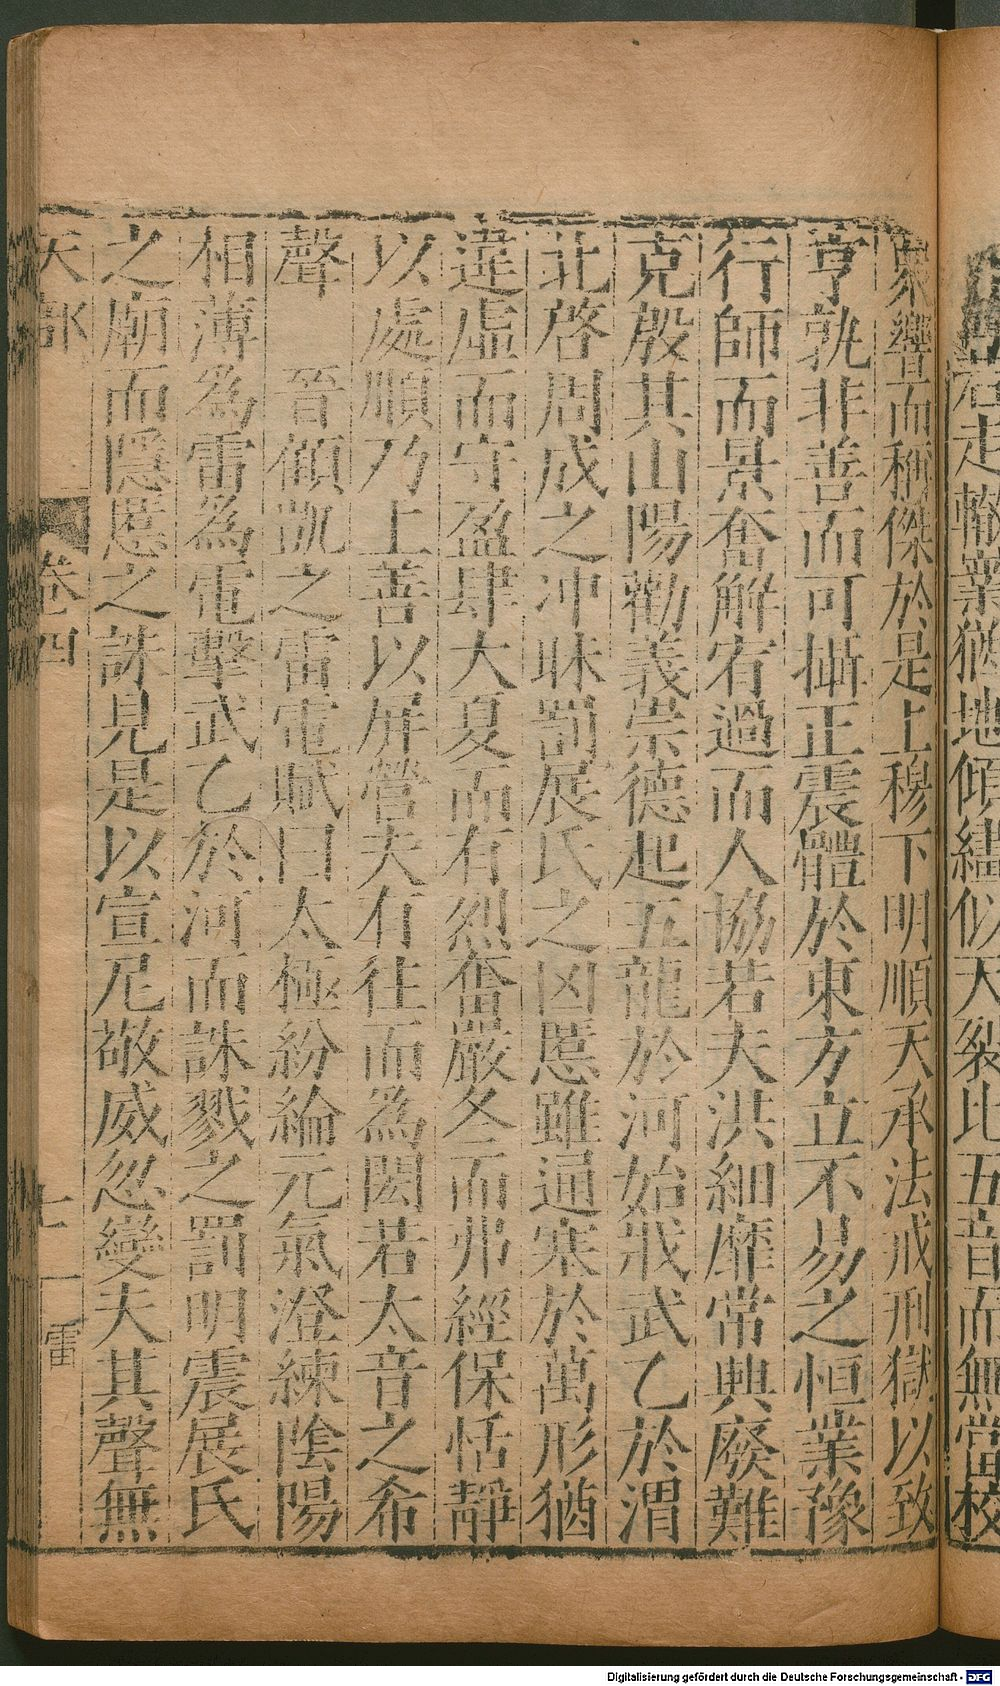 君走轍業猶地傾繣似天裂比五音而無當校
衆響而稱傑於是上穆下明順天承法戒刑獄以致
亨孰非善而可攝正震體於東方立不易之恒業豫
行師而景奮解宥過而人協若夫洪細靡常興廢難
克殷其山陽勸義崇德起五龍於河始戕武乙於渭
北啓周成之沖昧罰展氏之凶慝雖通塞於萬形猶
違虛而守盈肆大夏而有烈奮嚴冬而弗經保恬靜
以處順乃上善以屏營夫有往而為閡若太音之希
聲　晉顧凱之雷電賦曰太極紛綸元氣澄練陰陽
相薄為雷為電擊武乙於河而誅戮之罰明震展氏
之廟而隱慝之誅見是以宣尼敬威忽變夫其聲無
天部　卷四　七　雷
Digitalisierung gefördert durch die Deutsche Forschungsgemeinschaft - DFG